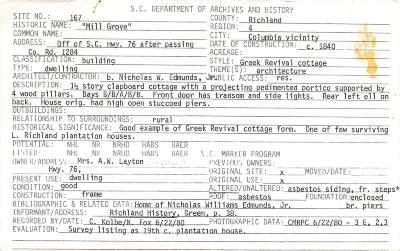 S.C. DEPARTMENT OF ARCHIVES AND HISTORY
SITE NO.: 167 COUNTY: Richland
HISTORIC NAME: "Mill Grove" REGION: 4
COMMON NAME: CITY: Columbia vicinity
ADDRESS: Off of S.C. Hwy. 76 after passing DATE OF CONSTRUCTION: c. 1840
Co. Rd. 1284 ACREAGE:
CLASSIFICATION: building STYLE: Greek Revival cottage
TYPE: dwelling THEME(S): architecture
ARCHITECT/CONTRACTOR: b. Nicholas W. Edmunds, Jr. PUBLIC ACCESS: res.
DESCRIPTION: 1½ story clapboard cottage with a projecting pedimented portico supported by
4 wood pillars. Bays B/B/A/B/B. Front door has transom and side lights. Rear left ell on
back. House orig. had high open stuccoed piers.
OUTBUILDINGS:
RELATIONSHIP TO SURROUNDINGS: rural
HISTORICAL SIGNIFICANCE: Good example of Greek Revival cottage form. One of few surviving
L. Richland plantation houses.
POTENTIAL: NHL NR NHD HABS HAER
LISTED: NHL NR NHD HABS HAER S.C. MARKER PROGRAM
OWNER/ADDRESS: Mrs. A.W. Layton PREVIOUS OWNERS:
Hwy. 76, ORIGINAL SITE: x MOVED/DATE:
PRESENT USE: dwelling ORIGINAL USE: x
CONDITION: good ALTERED/UNALTERED: asbestos siding, fr. steps*
CONSTRUCTION: frame ROOF: asbestos FOUNDATION: enclosed
BIBLIOGRAPHIC & RELATED DATA: Home of Nicholas Williams Edmunds, Jr. br. piers
INFORMANT/ADDRESS: Richland History, Green, p. 38.
RECORDED BY/DATE: C. Kolbe/N. Fox 6/22/80 PHOTOGRAPHIC DATA: CMRPC 6/22/80 - 3 E, 2,3
EVALUATION: Survey listing as 19th c. plantation house.